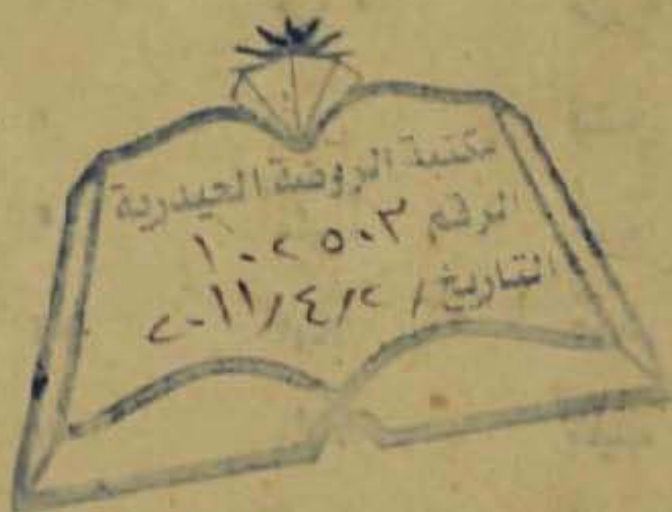 مكتبة الروضة الحيدرية
الرقم ١٠٢٥٠٣
التاريخ / ٢٠١١/٤/٢